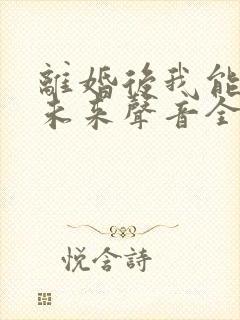 離婚後我能
未来聲音全
悅含詩